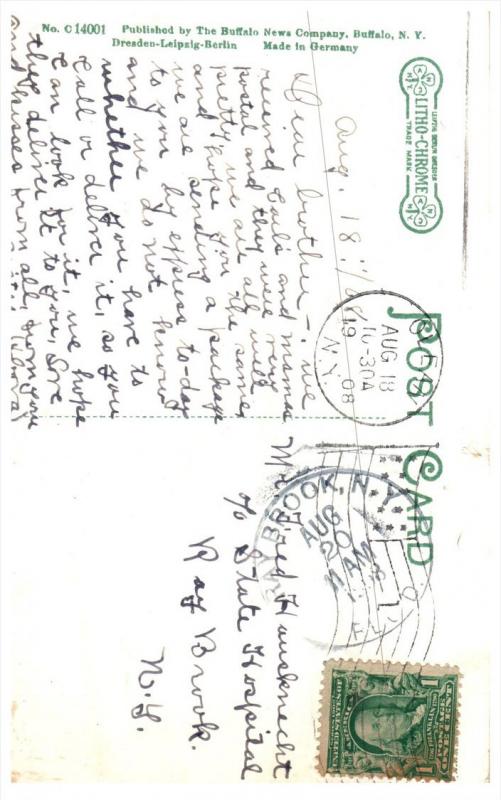 No. C 14001 Published by The Buffalo News Company, Buffalo, N. Y.
Dresden-Leipzig-Berlin Made in Germany
LITHO-CHROME
TRADE MARK
POST CARD
Aug. 18
Dear brother - we
received Carl's and mama
postal and they were very
pretty, we are all well
and hope you the same
we are sending a package
to you by express to-day
and we do not know
whether you have to
call or deliver it, so you
can look for it, we hope
they deliver it to you, love
and kisses from all, from your
AUG 18
10-30A
1908
N.Y.
RAY BROOK, N.Y.
AUG
20
11 AM
Mr. Fred Hausknecht
c/o State Hospital
Ray Brook.
N.Y.
UNITED STATES OF AMERICA
1 ONE CENT 1